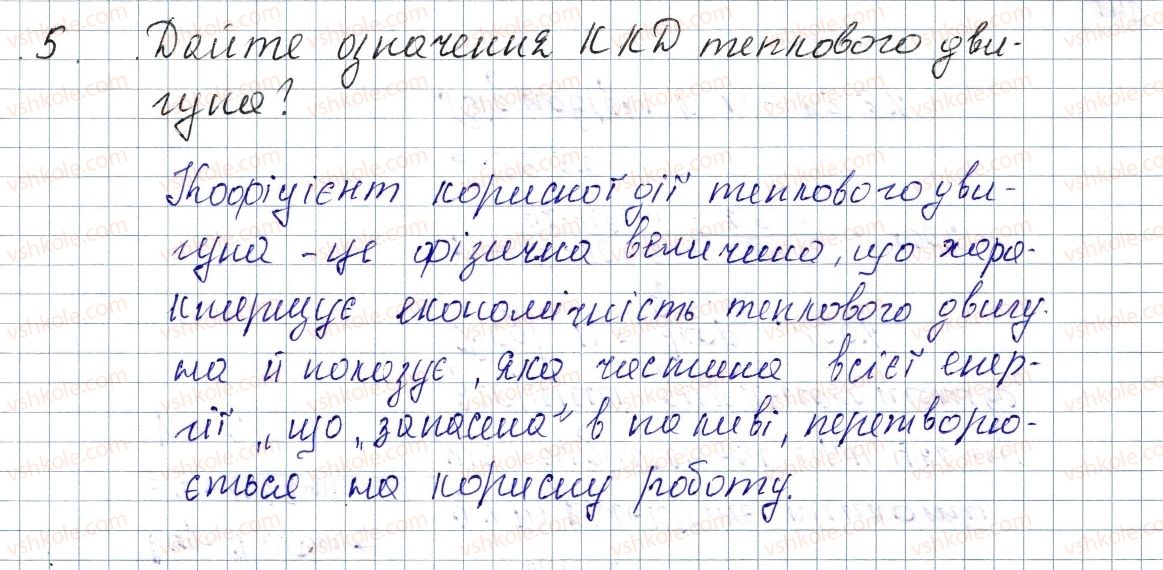 5. Дайте означення ККД теплового дви-
гуна?
Коофіцієнт корисної дії теплового дви-
гуна - це фізична величина, що хара-
ктеризує економічність теплового двигу-
на й показує, яка частина всієї енер-
гії „що „запасена" в паливі, перетворю-
ється на корисну роботу.